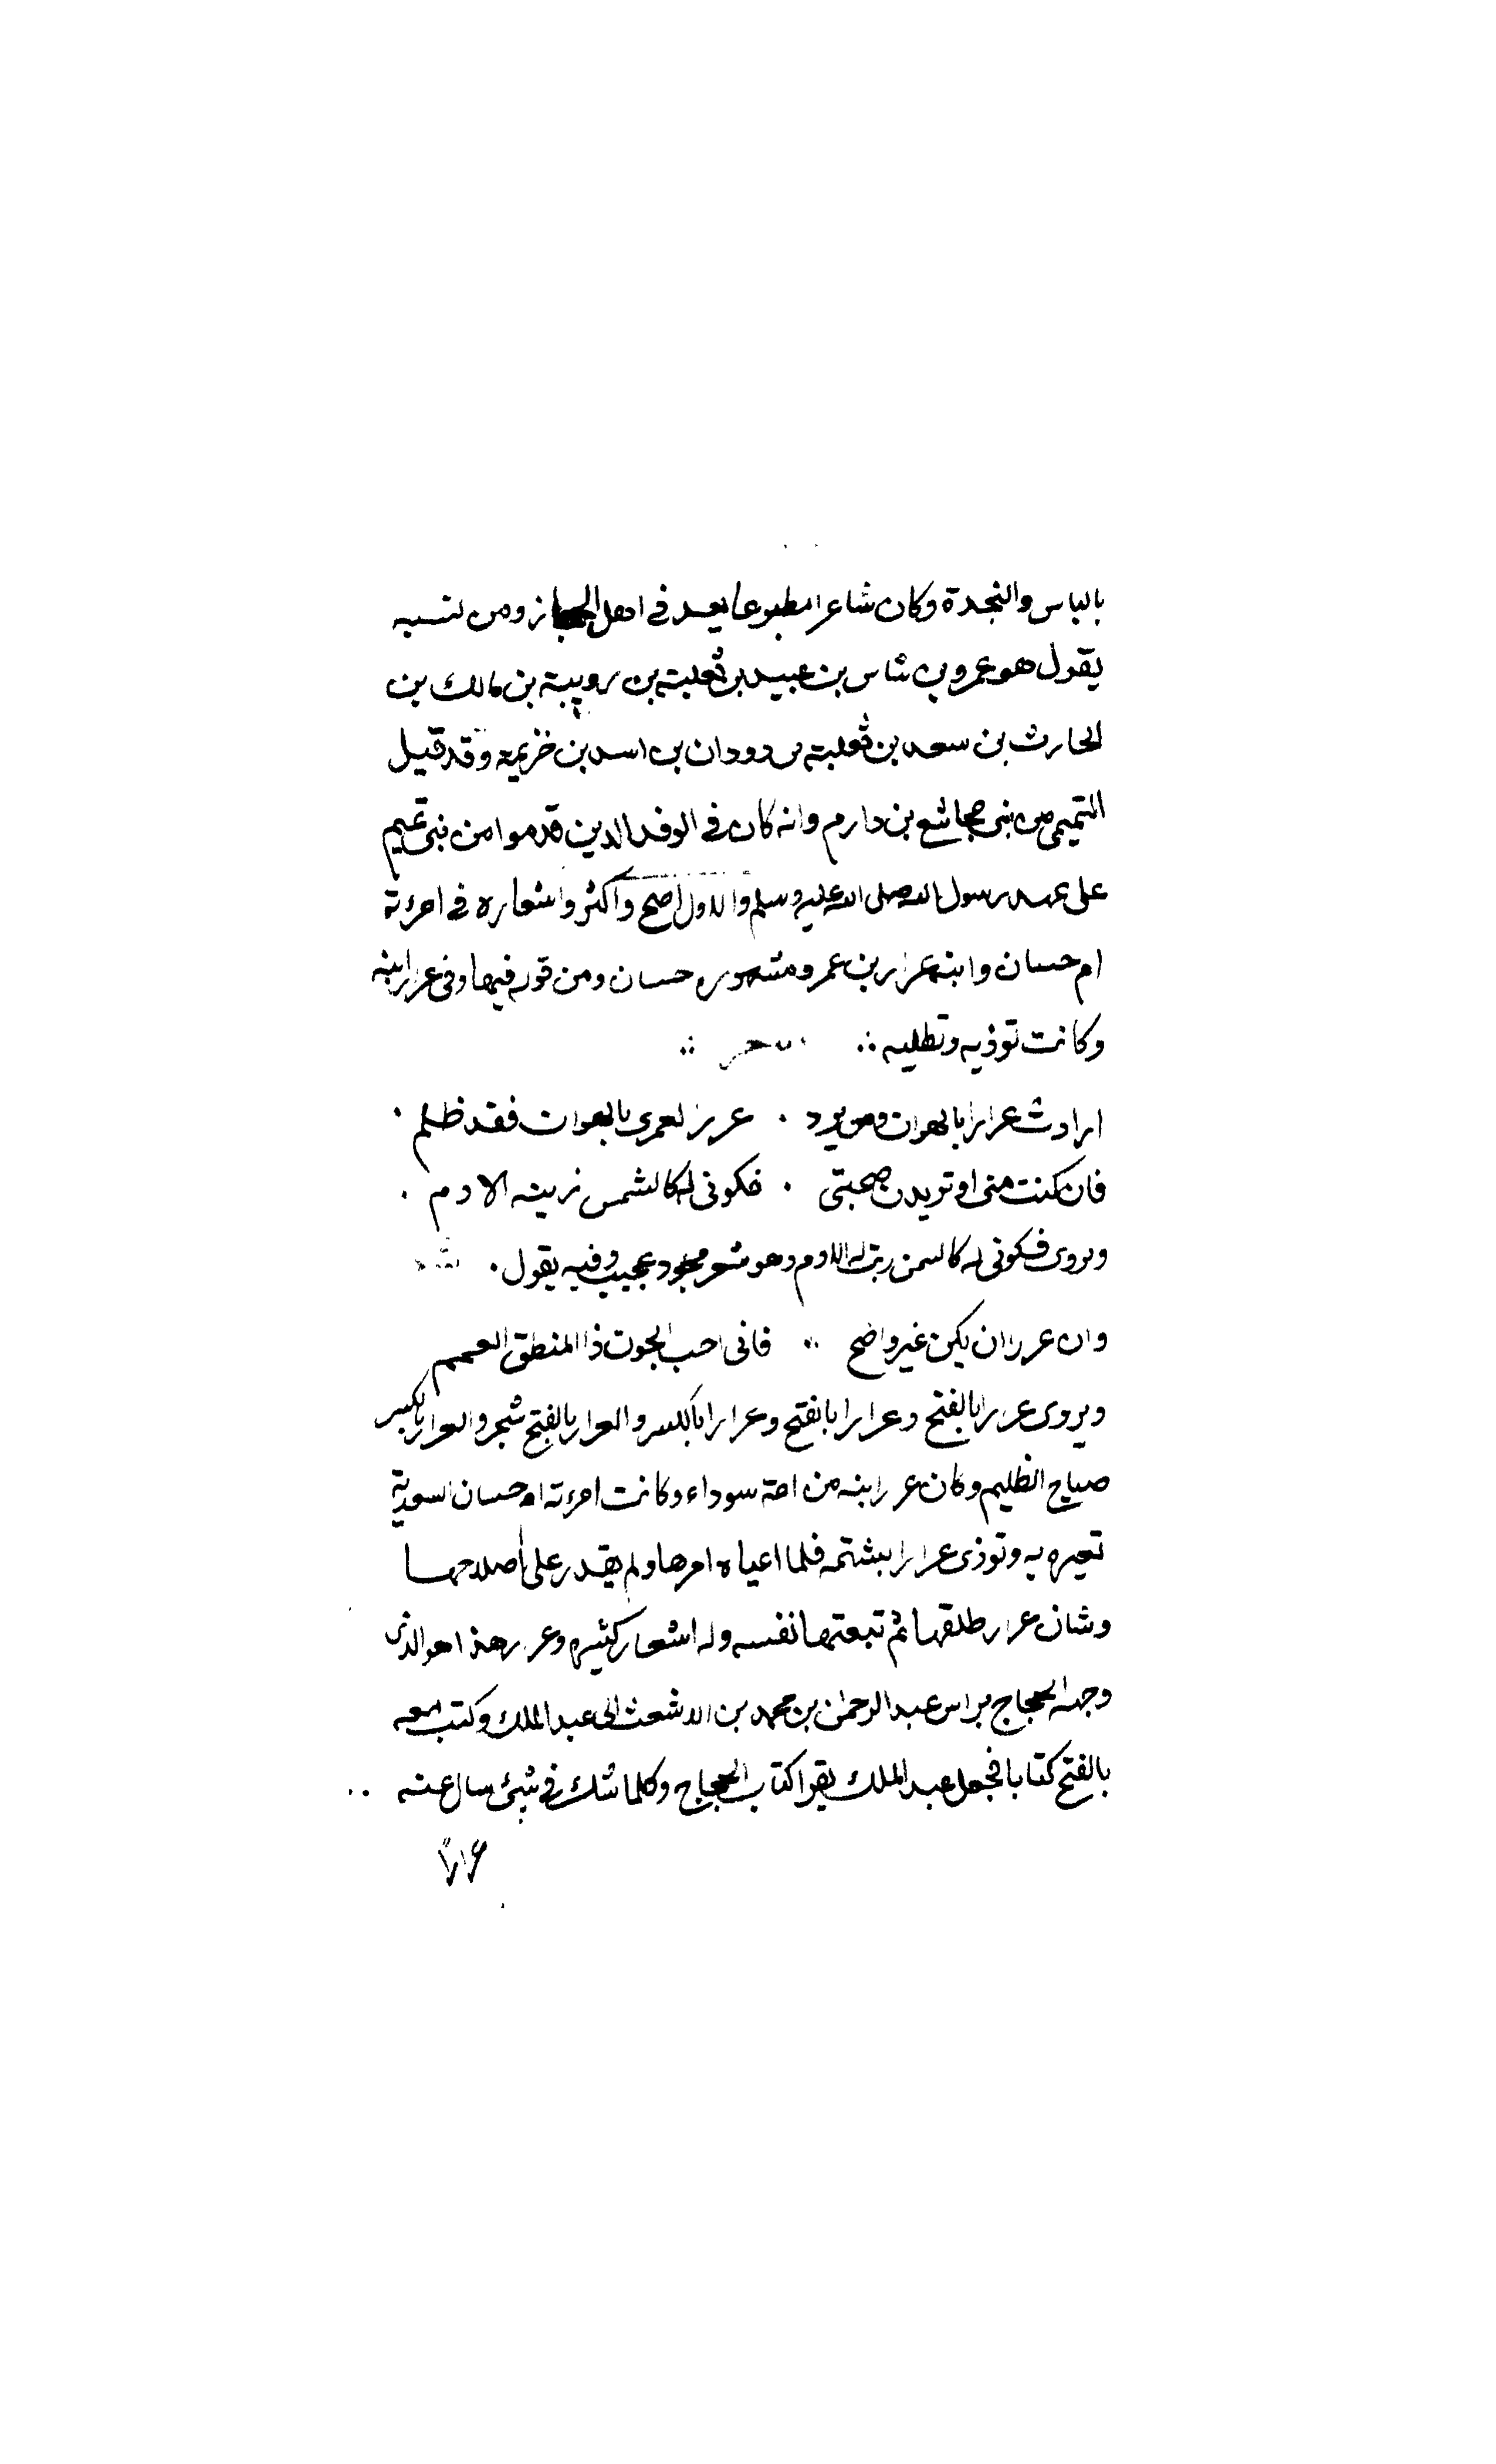 بالباس والنجدة وكان شاعرا مطبوعا يعد في اهل الحجاز ومن نسبه
يقول هو عمرو بن شاس بن عبيد بن ثعلبة بن رويبة بن مالك بن
الحارث بن سعد بن ثعلبة بن دودان بن اسد بن خزيمة وقد قيل
التميمي من بني مجاشع بن دارم وانه كان في الوفد الدين قدموا من بني تميم
على عهد رسول الله صلى الله عليه وسلم والاول اصح واكثر واشعاره في امرءته
ام حسان وابنه عرار بن عمرو مشهوره حسان ومن قوله فيها وفي عرار ابنه
وكانت توذيه وتظلمه ∴ ∴
ارادت عرارا بالهوان ومن يرد . عرار لعمرى بالهوان فقد ظلم .
فان كنت منى او تريدن صحبتي . فكونى له كالشمس زينه الادم .
ويروى فكونى له كالسمن ربت له الادم وهو شعر مجود عجيب وفيه يقول .
وان عرار ان يكن غير واضح ∴ فانى احب الجون ذا المنطق العمم
ويروى عرارا بالفتح وعرارا بالفتح وعرارا بالكسر والعرار بالفتح شجر والعرار بالكسر
صياح الظليم وكان عرار ابنه من امة سوداء وكانت امرءته ام حسان السعدية
تعيره به وتوذى عرارا بشتمه فلما اعياه امرها ولم يقدر على اصلاحها
وشان عرار طلقها ثم تبعتها نفسه وله اشعار كثيره وعرار هذا هو الذى
وجهه الحجاج براس عبد الرحمن بن محمد بن الاشعث الى عبد الملك وكتب معه
بالفتح كتابا فجعل عبد الملك يقرا كتاب الحجاج وكلما شك في شئ سال عنه